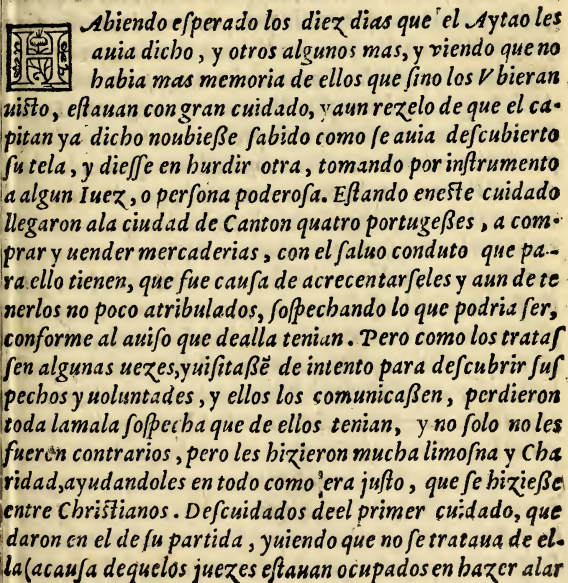 HAbiendo eſperado los diez dias que el Aytao les
auia dicho, y otros algunos mas, y viendo que no
habia mas memoria de ellos que ſino los Vbieran
uiſto, eſtauan con gran cuidado, yaun rezelo de que el ca-
pitan ya dicho noubieße ſabido como ſe auia deſcubierto
ſu tela, y dieſſe en hurdir otra, tomando por inſtrumento
a algun Iuez, o perſona poderoſa. Eſtando eneſte cuidado
llegaron ala ciudad de Canton quatro portugeßes, a com-
prar y uender mercaderias, con el ſaluo conduto que pa-
ra ello tienen, que fue cauſa de acrecentarſeles y aun de te
nerlos no poco atribulados, ſoſpechando lo que podria ſer,
conforme al auiſo que dealla tenian. Pero como los trataſ
ſen algunas uezes, yuiſitaßē de intento para deſcubrir ſuſ
pechos y uoluntades, y ellos los comunicaßen, perdieron
toda lamala ſoſpecha que de ellos tenian, y no ſolo no les
fueron contrarios, pero les hizieron mucha limoſna y Cha
ridad, ayudandoles en todo como era juſto, que ſe hizieße
entre Chriſtianos. Deſcuidados deel primer cuidado, que
daron en el de ſu partida, yuiendo que no ſe trataua de el-
la (acauſa dequelos juezes eſtauan ocupados en hazer alar